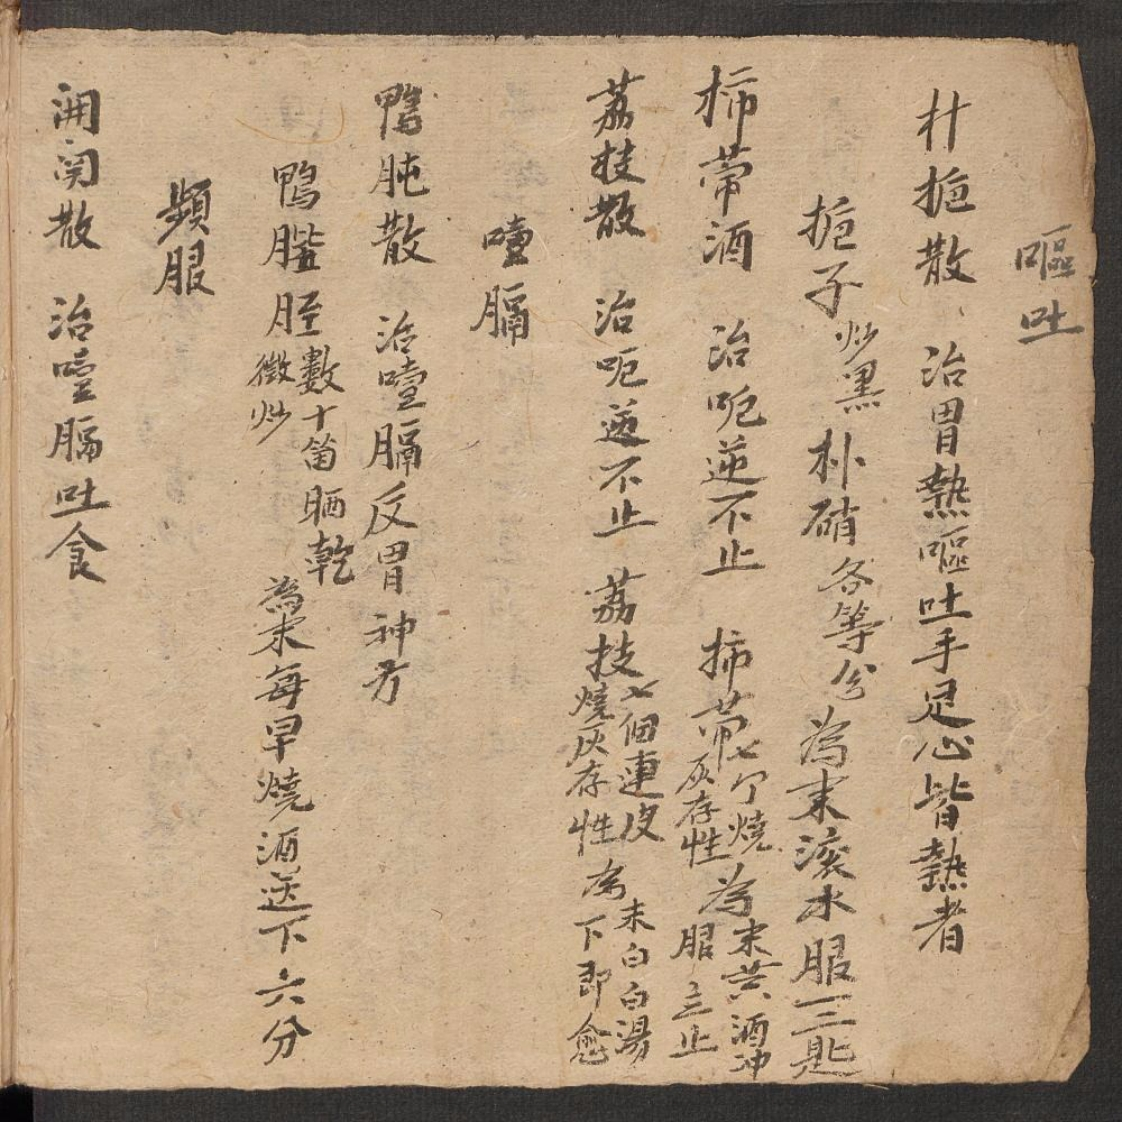 嘔吐
朴梔散 治胃熱嘔吐手足心皆熱者
梔子炒黑朴硝各等分為末滾水服二三匙
柿蒂酒 治呃逆不止 柿蒂七个燒灰存性為末共酒冲服立止
荔枝散 治呃逆不止 荔枝七個連皮燒灰存性為末白白湯下即愈
噎膈
鴨肫散 治噎膈反胃神方
鴨膍胵數十箇晒乾微炒為末每早燒酒送下六分
頻服
開関散 治噎膈吐食